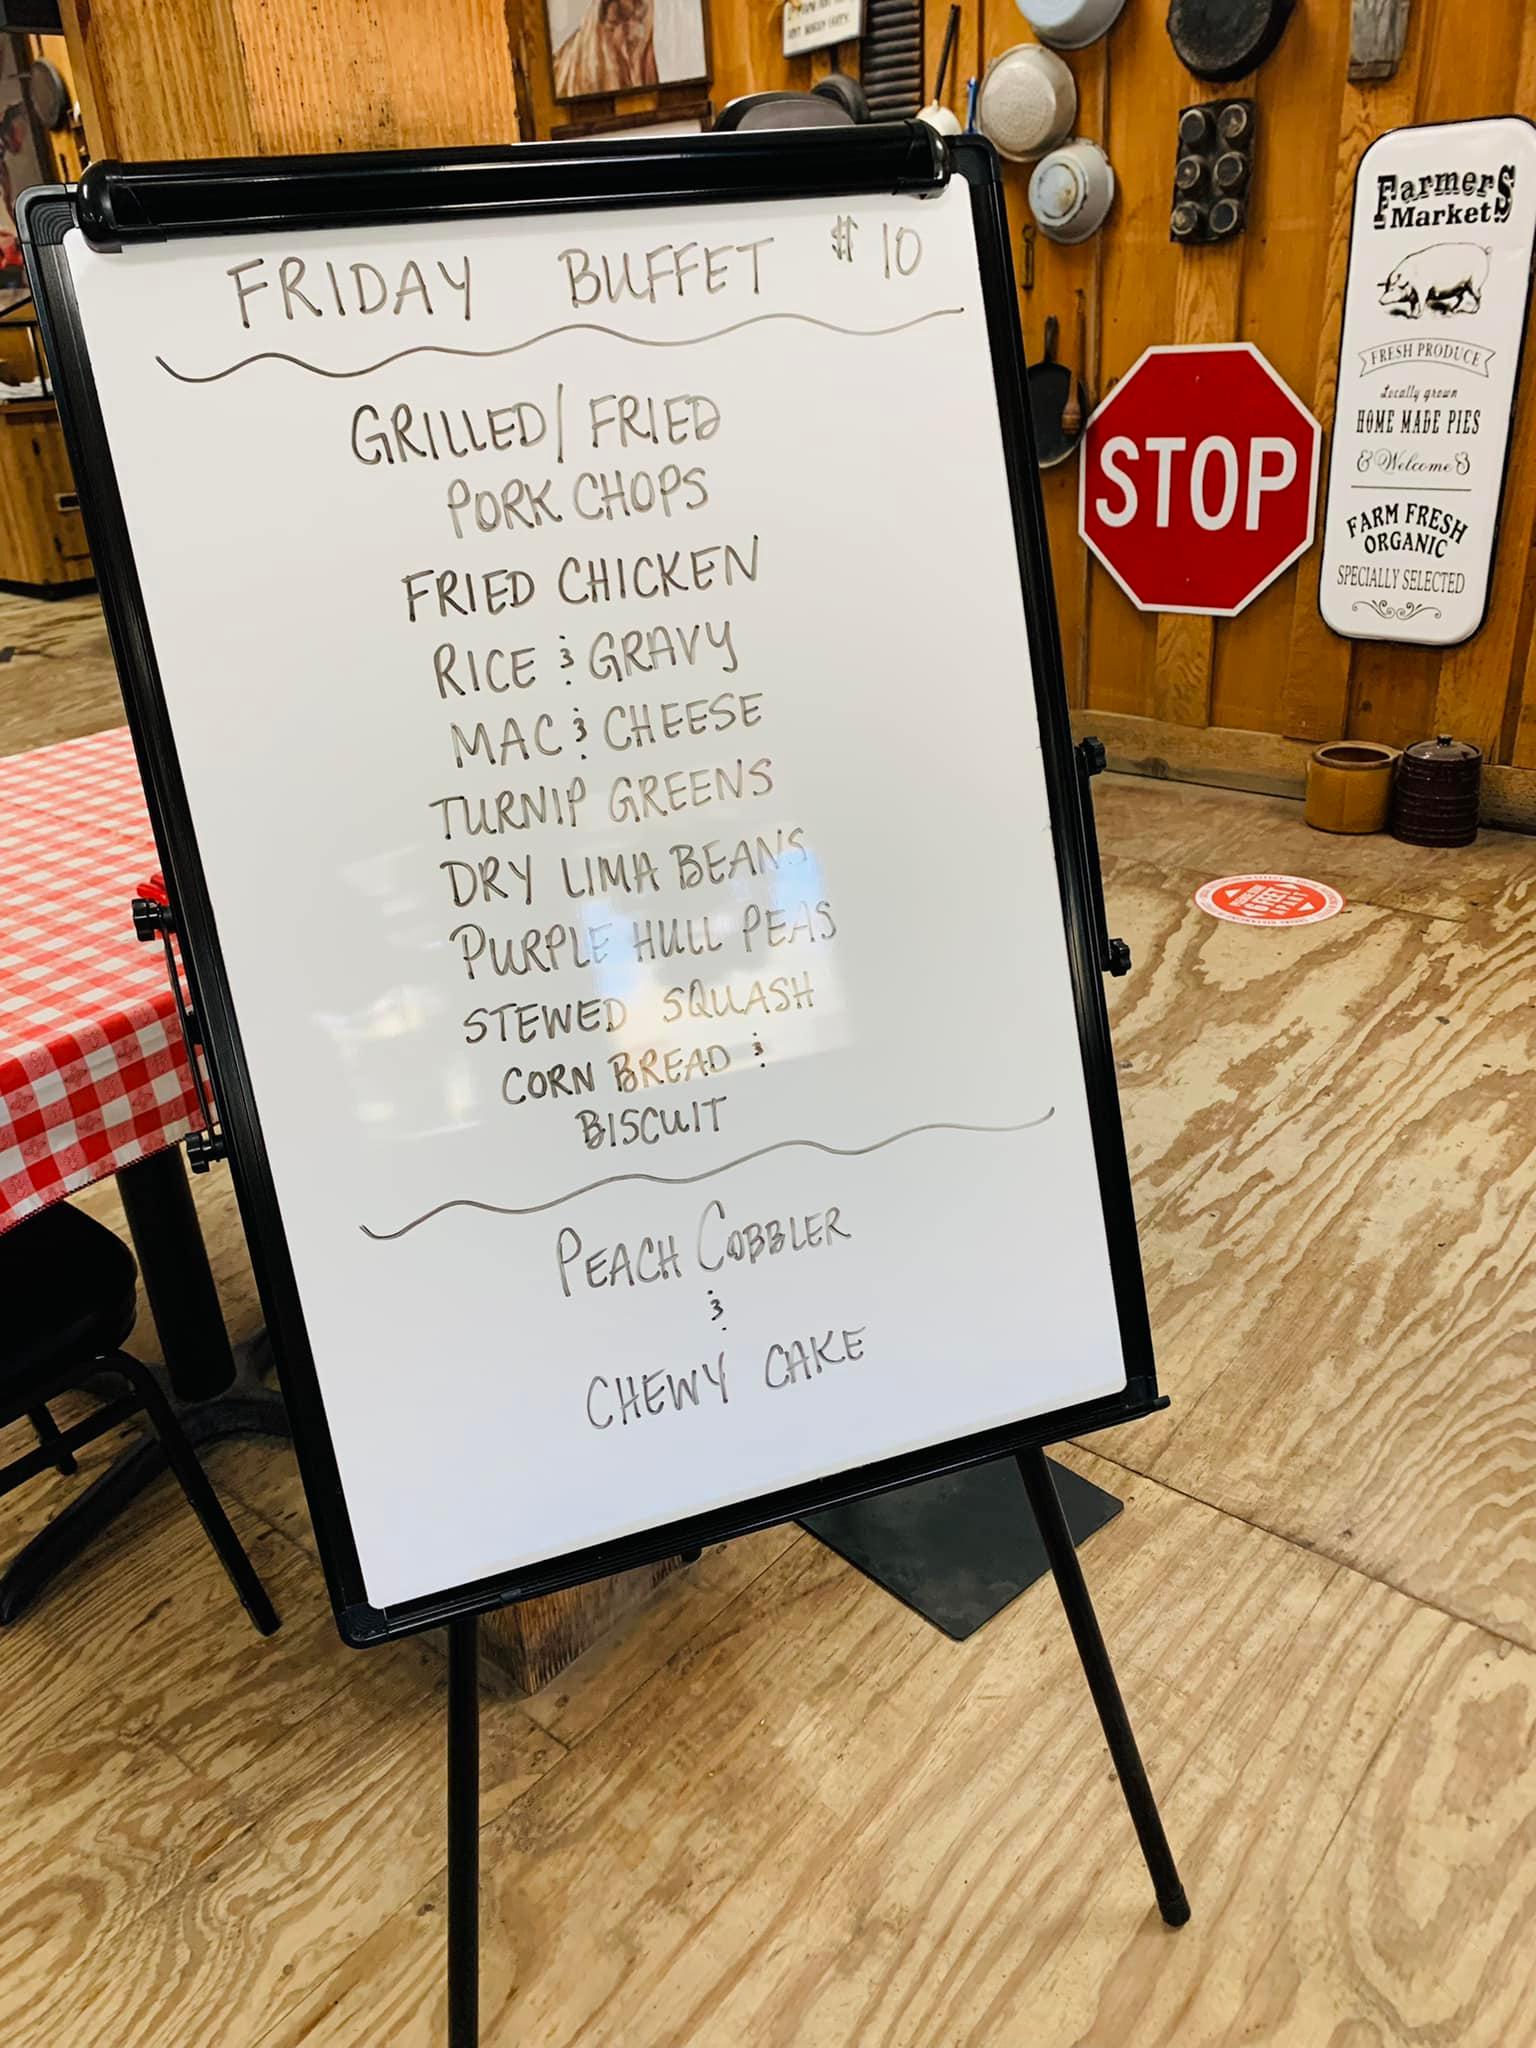 FRIDAY BUFFET $10
GRILLED/FRIED
PORK CHOPS
FRIED CHICKEN
RICE & GRAVY
MAC & CHEESE
TURNIP GREENS
DRY LIMA BEANS
PURPLE HULL PEAS
STEWED SQUASH
CORN BREAD &
BISCUIT
PEACH COBBLER
&
CHEWY CAKE
STOP
Farmers
Market
FRESH PRODUCE
Locally grown
HOME MADE PIES
& Welcome &
FARM FRESH
ORGANIC
SPECIALLY SELECTED
6 FEET